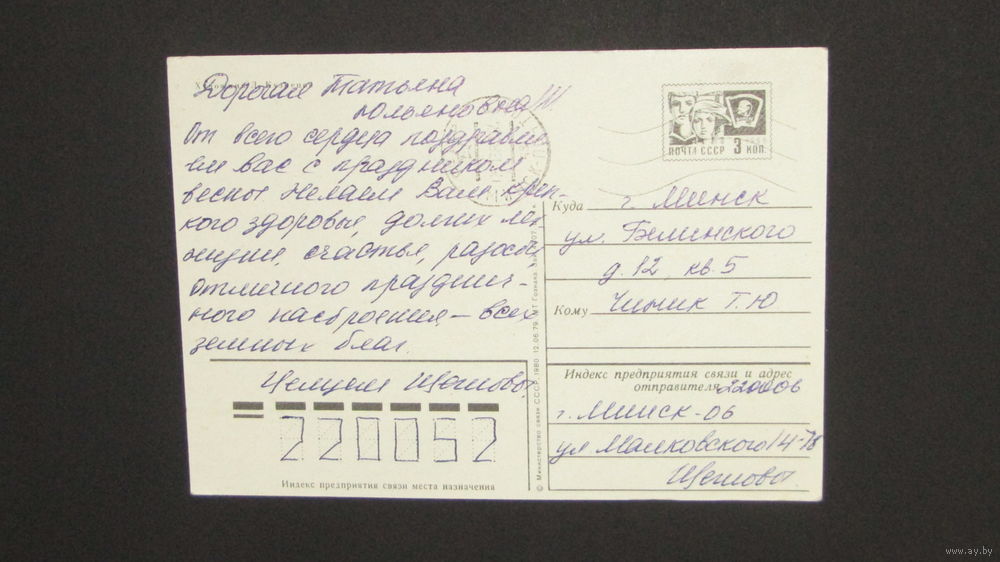 Дорогая Татьяна
Юльяновна!!!
От всего сердца поздравля
ем вас с праздником
весны Желаем Вам креп-
кого здоровья, долгих лет
жизни, счастья, радости,
отличного празднич-
ного настроения, – всех
земных благ.
Целуем
220052
Индекс предприятия связи места назначения
© Министерство связи СССР. 1980 12.06.79. МТ Гознака.
ПОЧТА СССР 3 КОП.
Куда г. Минск
ул. Белинского
д. 12, кв. 5
Кому Чиник Т. Ю
Индекс предприятия связи и адрес
отправителя 220006
г. Минск-06
ул Маяковского 14-78
www.ay.by